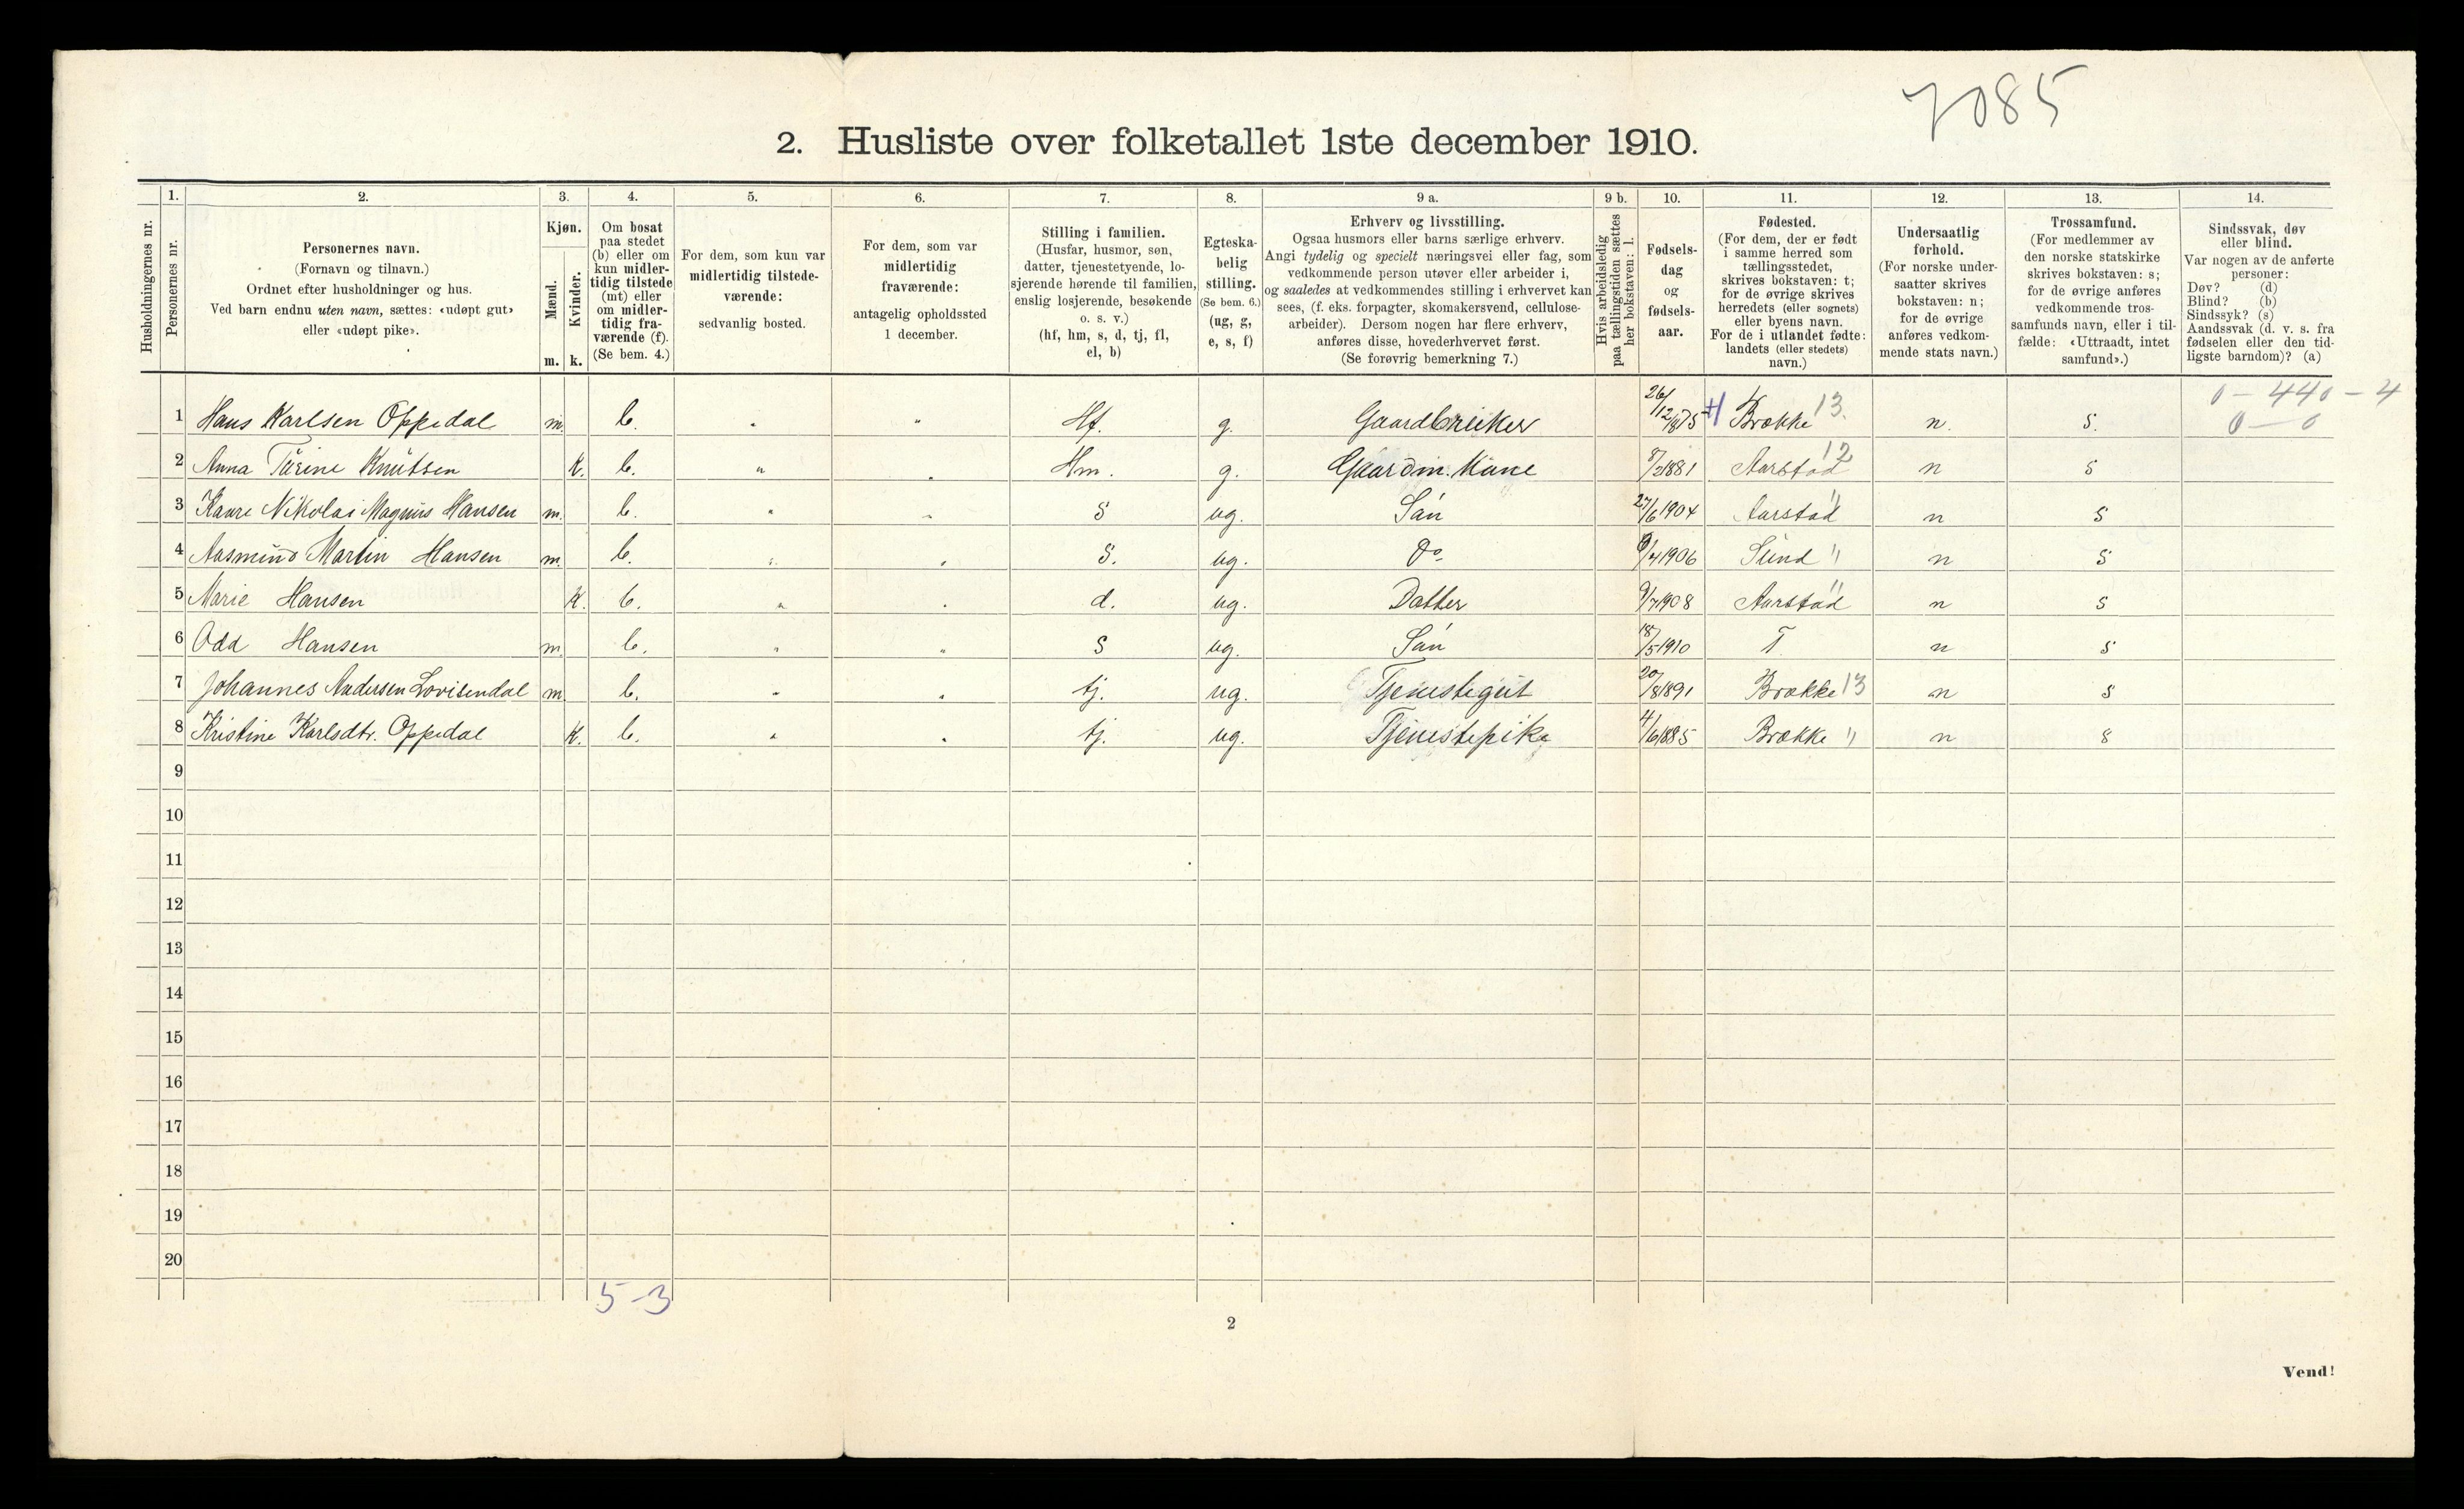 7085
2. Husliste over folketallet 1ste december 1910.
Husholdningernes nr.
1. Personernes nr.
2. Personernes navn. (Fornavn og tilnavn.) Ordnet efter husholdninger og hus. Ved barn endnu uten navn, sættes: «udøpt gut» eller «udøpt pike».
3. Kjøn. Mænd. m. Kvinder. k.
4. Om bosat paa stedet (b) eller om kun midlertidig tilstede (mt) eller om midlertidig fraværende (f). (Se bem. 4.)
5. For dem, som kun var midlertidig tilstedeværende: sedvanlig bosted.
6. For dem, som var midlertidig fraværende: antagelig opholdssted 1 december.
7. Stilling i familien. (Husfar, husmor, søn, datter, tjenestetyende, losjerende hørende til familien, enslig losjerende, besøkende o. s. v.) (hf, hm, s, d, tj, fl, el, b)
8. Egteskabelig stilling. (Se bem. 6.) (ug, g, e, s, f)
9 a. Erhverv og livsstilling. Ogsaa husmors eller barns særlige erhverv. Angi tydelig og specielt næringsvei eller fag, som vedkommende person utøver eller arbeider i, og saaledes at vedkommendes stilling i erhvervet kan sees, (f. eks. forpagter, skomakersvend, cellulosearbeider). Dersom nogen har flere erhverv, anføres disse, hovederhvervet først. (Se forøvrig bemerkning 7.)
9 b. Hvis arbeidsledig paa tællingstiden sættes her bokstaven: l.
10. Fødselsdag og fødselsaar.
11. Fødested. (For dem, der er født i samme herred som tællingsstedet, skrives bokstaven: t; for de øvrige skrives herredets (eller sognets) eller byens navn. For de i utlandet fødte: landets (eller stedets) navn.)
12. Undersaatlig forhold. (For norske undersaatter skrives bokstaven: n; for de øvrige anføres vedkommende stats navn.)
13. Trossamfund. (For medlemmer av den norske statskirke skrives bokstaven: s; for de øvrige anføres vedkommende trossamfunds navn, eller i tilfælde: «Uttraadt, intet samfund».)
14. Sindssvak, døv eller blind. Var nogen av de anførte personer: Døv? (d) Blind? (b) Sindssyk? (s) Aandssvak (d. v. s. fra fødselen eller den tidligste barndom)? (a)
0 - 440 - 4
0 - 0
1 Hans Karlsen Oppedal m. b. " " Hf. g. Gaardbruker 26/12 1875 Brække 13. n. s.
2 Anna Turine Knutsen K. b. " " Hm. g. Gaardm. Kone 8/2 1881 Aarstad 12 n s
3 Kaare Nikolai Magnus Hansen m. b. " " S ug. Søn 27/6 1904 Aarstad " n s
4 Aasmund Martin Hansen m. b. " " S. ug. Do 9/4 1906 Sund " n s
5 Marie Hansen K. b. " " d. ug. Datter 9/7 1908 Aarstad " n s
6 Odd Hansen m. b. " " S ug. Søn 18/5 1910 T. n s
7 Johannes Andersen Lovisendal m b. " " tj. ug. Tjenestegut 20/8 1891 Brække 13 n s
8 Kristine Karlsdtr. Oppedal K. b. " " tj. ug. Tjenestepike 4/6 1885 Brække " n s
9
10
11
12
13
14
15
16
17
18
19
20
5-3
2
Vend!